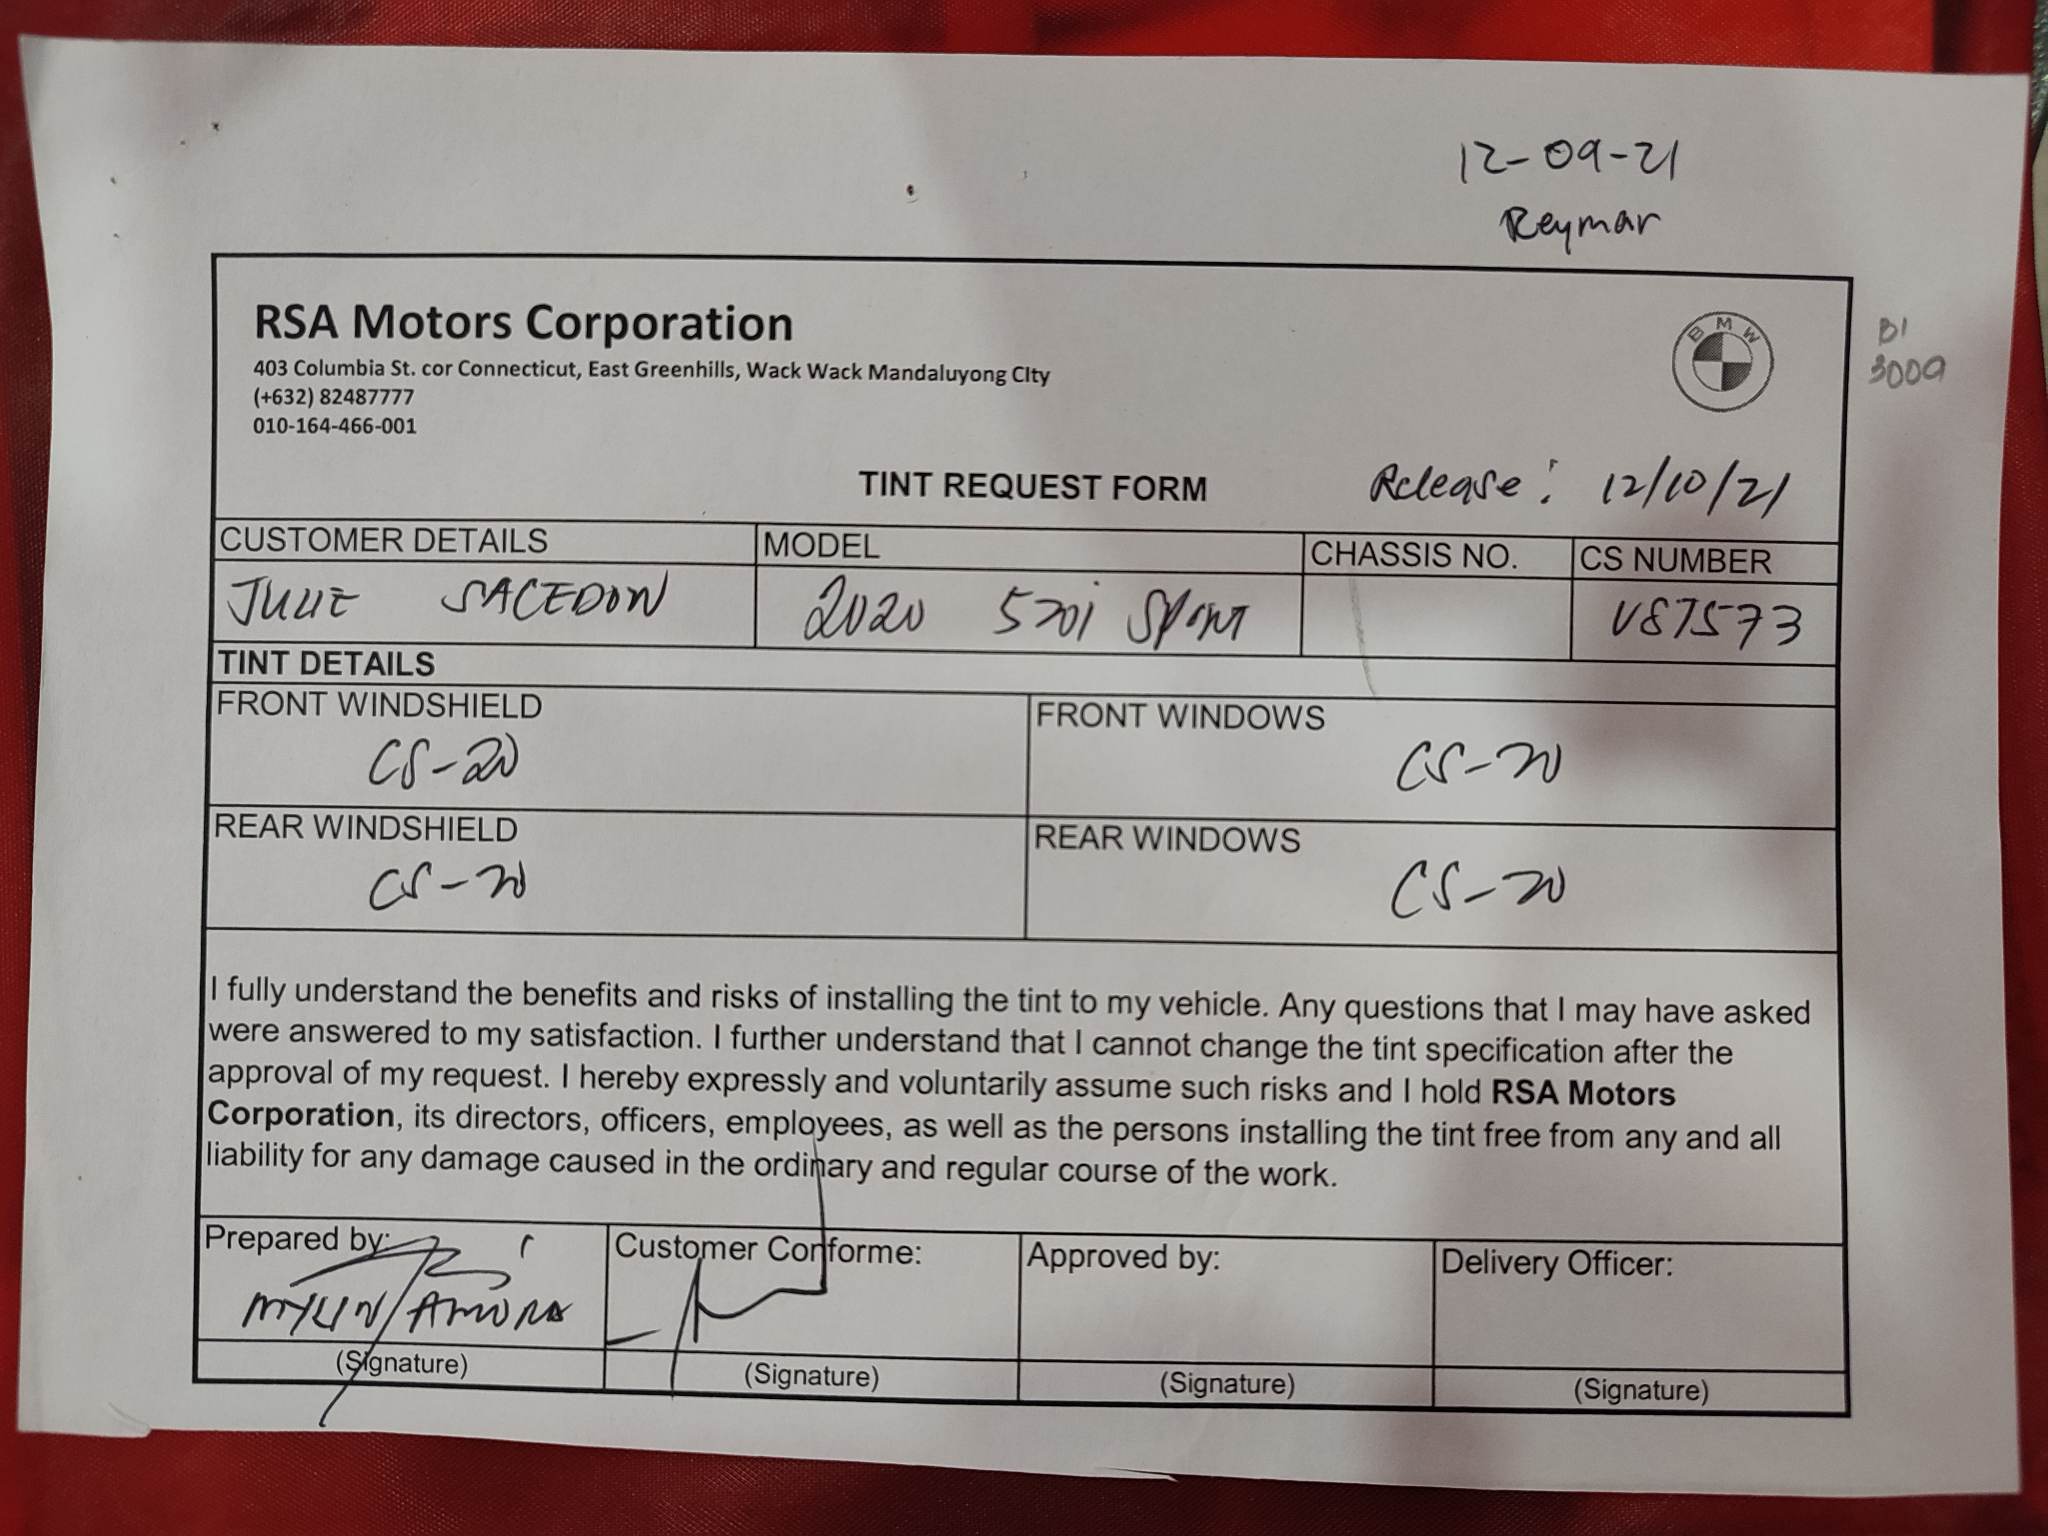 12-09-21
Reymar
RSA Motors Corporation
403 Columbia St. cor Connecticut, East Greenhills, Wack Wack Mandaluyong CIty
(+632) 82487777
010-164-466-001
BMW
BI
3009
TINT REQUEST FORM
Release: 12/10/21
CUSTOMER DETAILS MODEL CHASSIS NO. CS NUMBER
JULIE SACEDON 2020 520i SPORT V87573
TINT DETAILS
FRONT WINDSHIELD FRONT WINDOWS
CS-20 CS-20
REAR WINDSHIELD REAR WINDOWS
CS-20 CS-20
I fully understand the benefits and risks of installing the tint to my vehicle. Any questions that I may have asked
were answered to my satisfaction. I further understand that I cannot change the tint specification after the
approval of my request. I hereby expressly and voluntarily assume such risks and I hold RSA Motors
Corporation, its directors, officers, employees, as well as the persons installing the tint free from any and all
liability for any damage caused in the ordinary and regular course of the work.
Prepared by: Customer Conforme: Approved by: Delivery Officer:
MYLIN/AMORA
(Signature) (Signature) (Signature) (Signature)